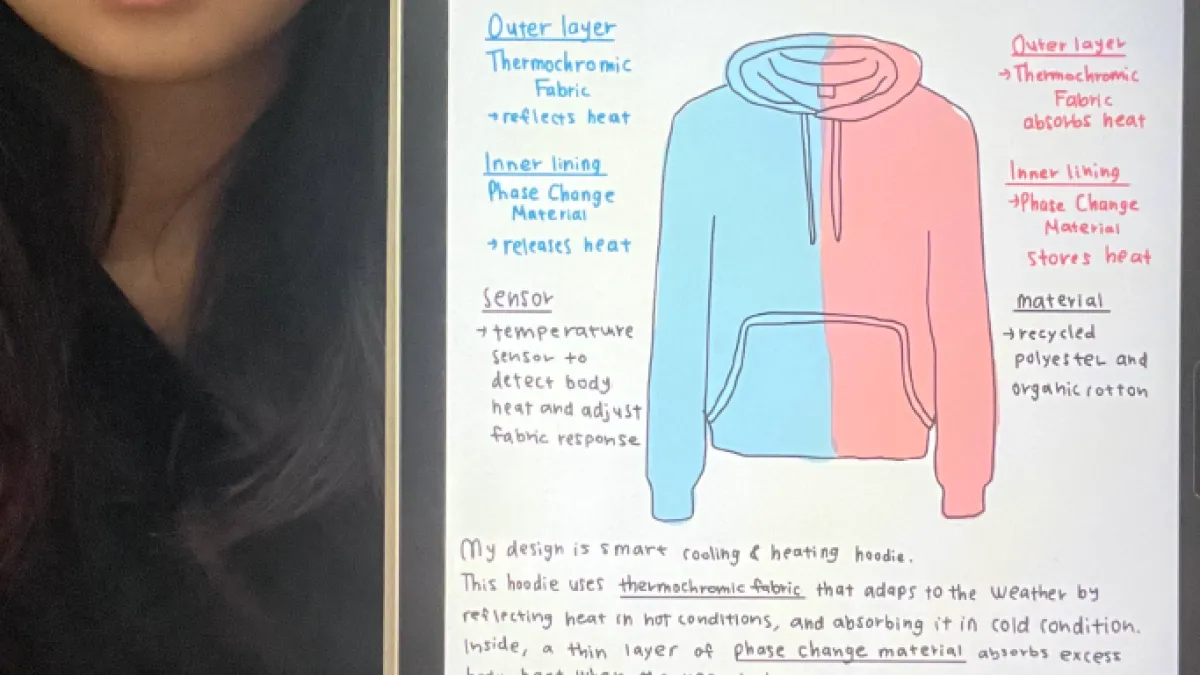 Outer layer
Thermochromic
Fabric
→reflects heat
Inner lining
Phase Change
Material
→releases heat
sensor
→temperature
sensor to
detect body
heat and adjust
fabric response
Outer layer
→Thermochromic
Fabric
absorbs heat
Inner lining
→Phase Change
Material
stores heat
material
→recycled
polyester and
organic cotton
My design is smart cooling & heating hoodie.
This hoodie uses thermochromic fabric that adaps to the weather by
reflecting heat in hot conditions, and absorbing it in cold condition.
Inside, a thin layer of phase change material absorbs excess